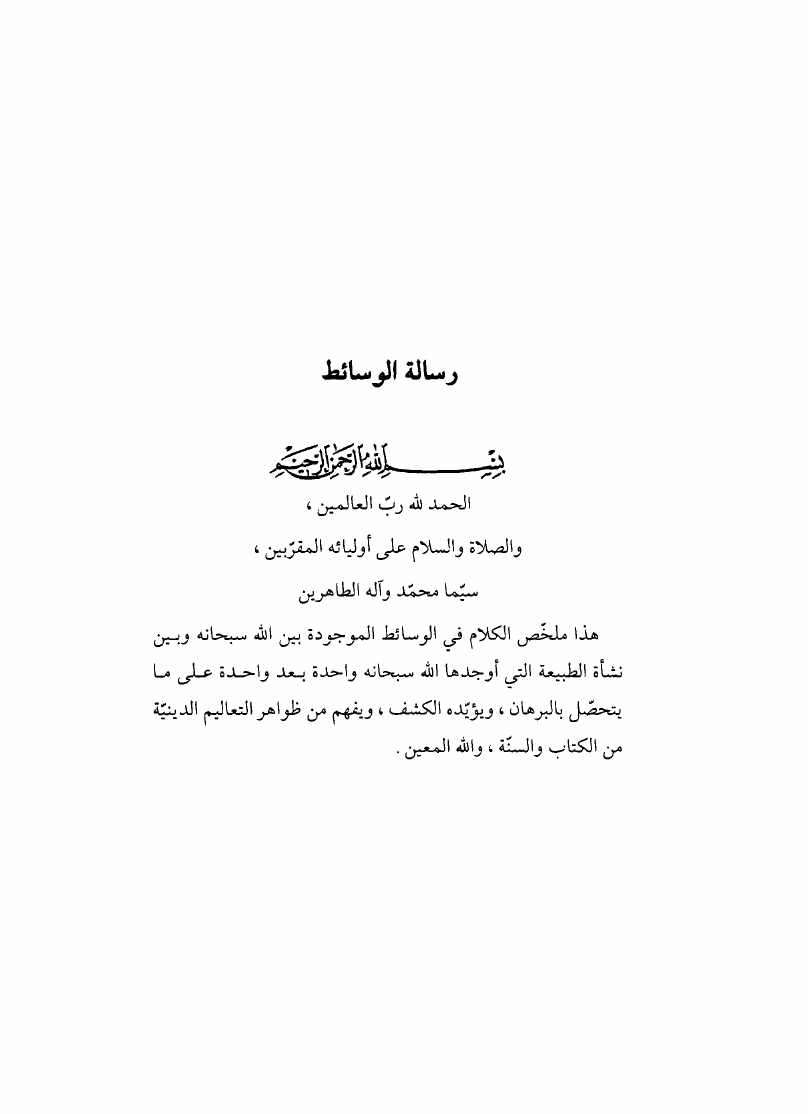 رسالة الوسائط
بسم الله الرحمن الرحيم
الحمد لله ربّ العالمين ،
والصلاة والسلام على أوليائه المقرّبين ،
سيّما محمّد وآله الطاهرين
هذا ملخّص الكلام في الوسائط الموجودة بين الله سبحانه وبين
نشأة الطبيعة التي أوجدها الله سبحانه واحدة بعد واحدة على ما
يتحصّل بالبرهان ، ويؤيّده الكشف ، ويفهم من ظواهر التعاليم الدينيّة
من الكتاب والسنّة ، والله المعين .